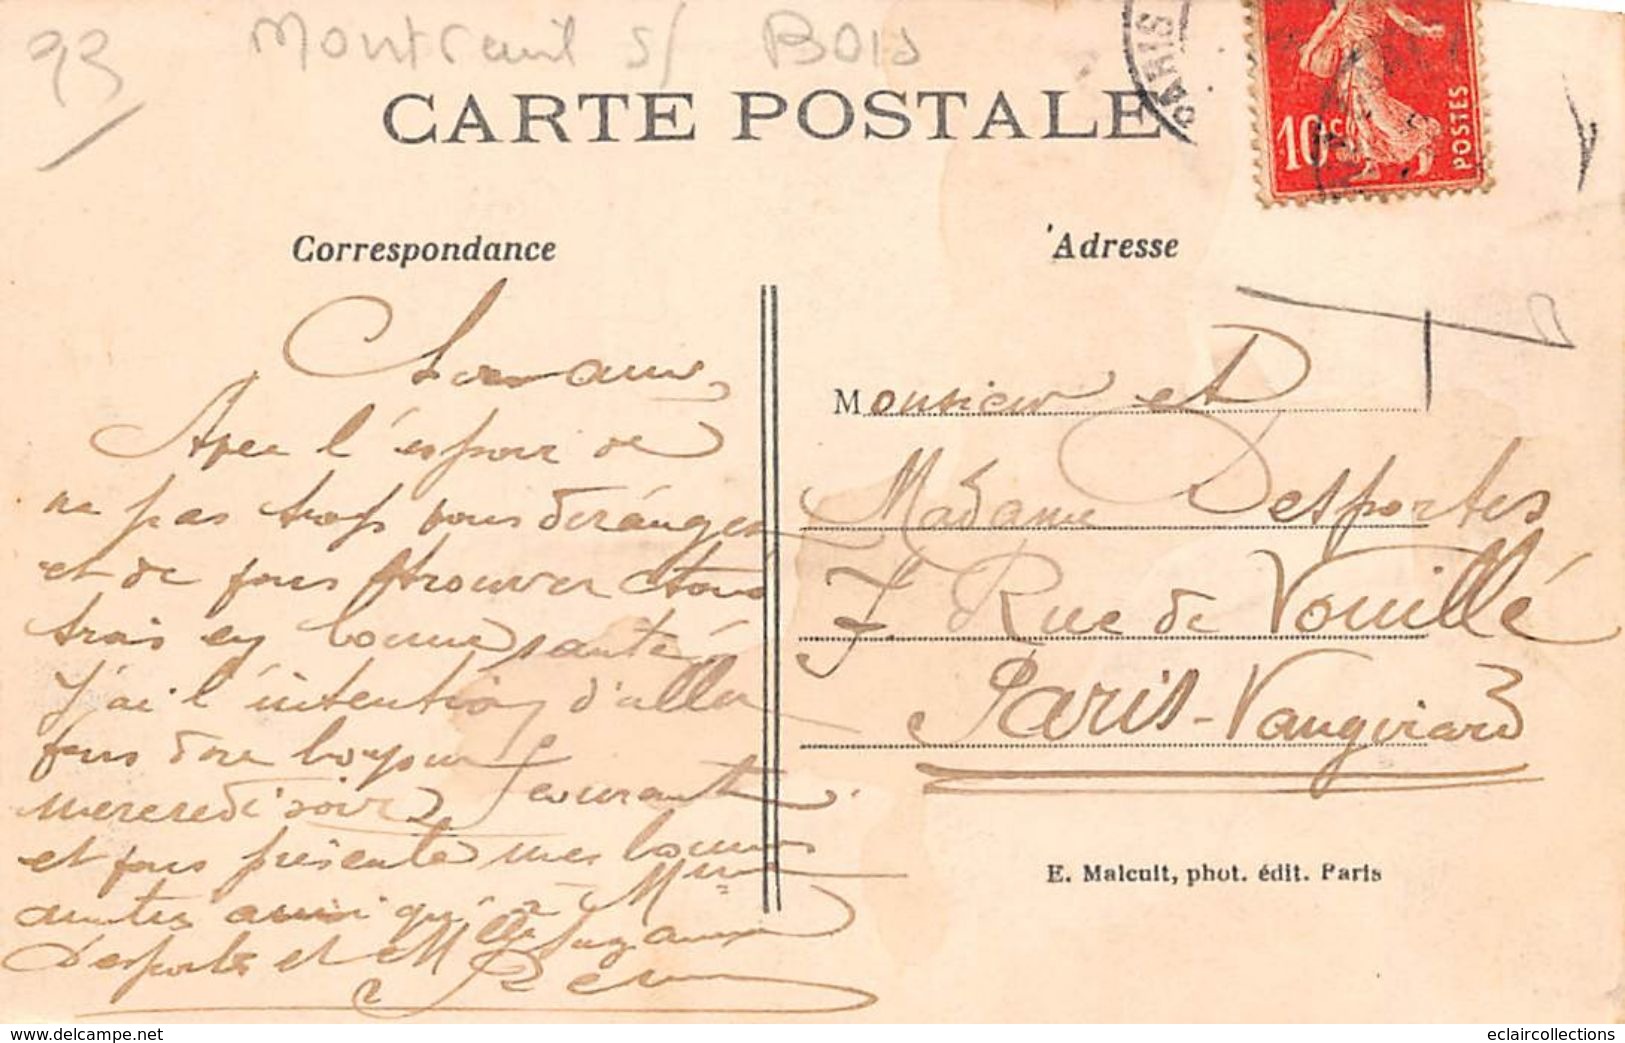 93
Montreuil s/ Bois
CARTE POSTALE
PARIS
10c
POSTES
Correspondance
Adresse
Cher ami,
Avec l'espoir de
ne pas trop vous déranger
et de vous trouver tous
trois en bonne santé,
J'ai l'intention d'aller
vous dire bonjour
mercredi soir courant
et vous présente mes bonnes
amitiés ainsi qu'à Mme
Desportes et Mlle Suzanne
Monsieur et
Madame Desportes
7. Rue de Vouillé
Paris-Vaugirard
E. Malcuit, phot. édit. Paris
www.delcampe.net
eclaircollections